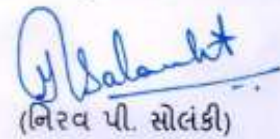 (નિરવ પી. સોલંકી)